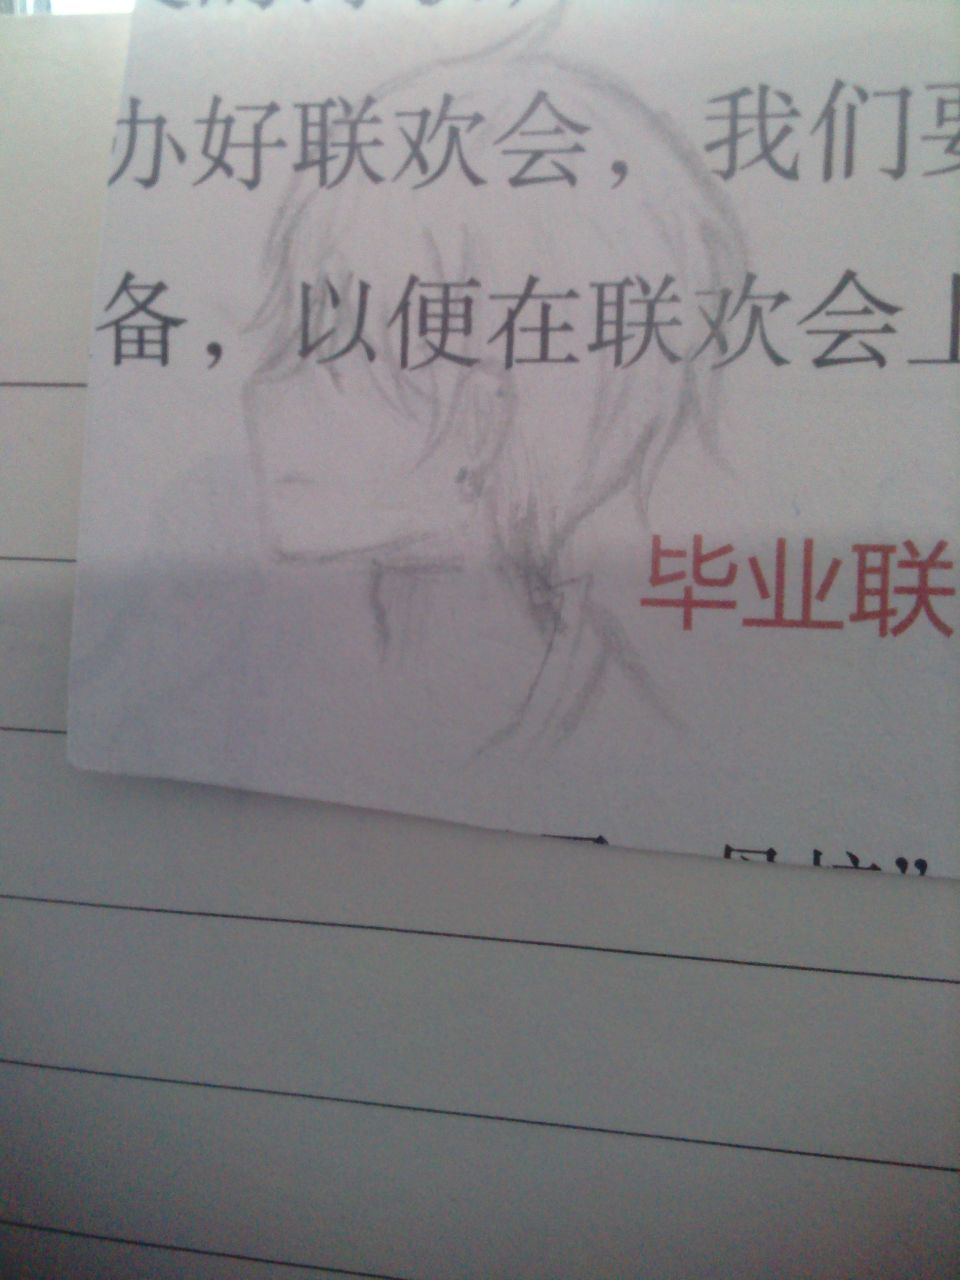 办好联欢会，我们要
备，以便在联欢会上
毕业联